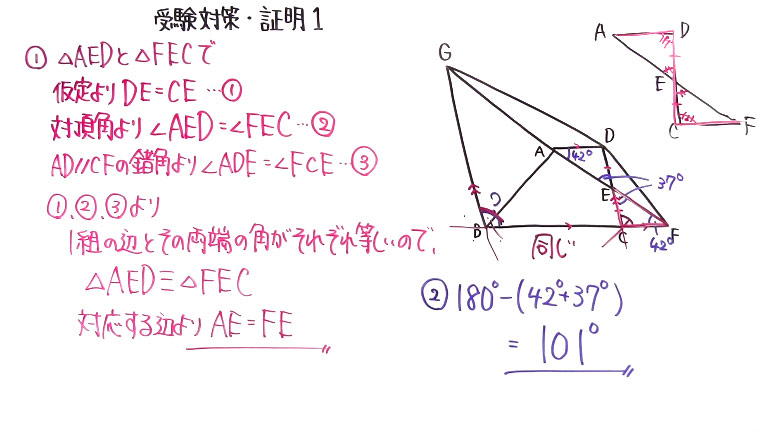 受験対策・証明1
① △AEDと△FECで
仮定よりDE=CE…①
対頂角より∠AED=∠FEC…②
AD//CFの錯角より∠ADE=∠FCE…③
①、②、③より
1組の辺とその両端の角がそれぞれ等しいので、
△AED≡△FEC
対応する辺より AE=FE
G
A
D
42°
37°
E
?
B
C
F
同じ
42°
A
D
E
C
F
② 180°-(42°+37°)
= 101°